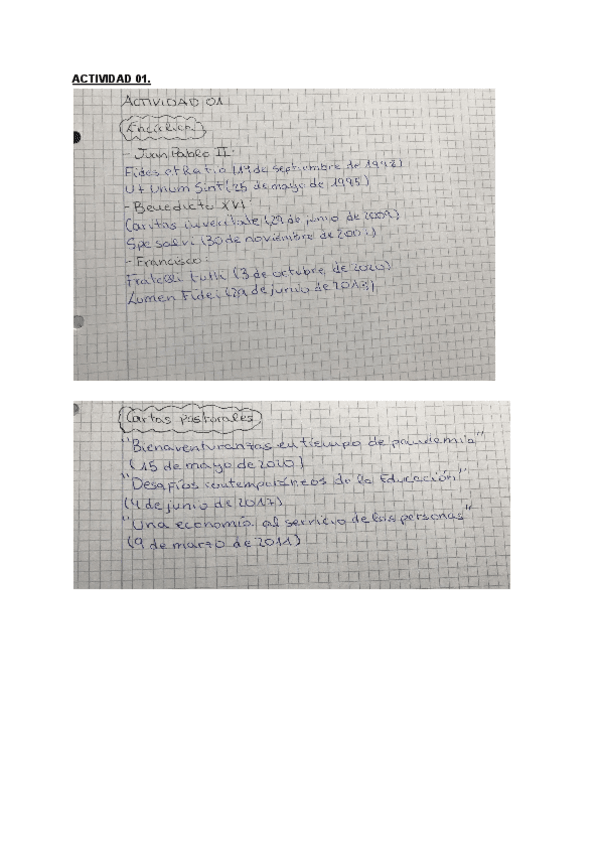 ACTIVIDAD 01.
ACTIVIDAD 01
Encíclica
- Juan Pablo II:
Fides et Ratio (14 de septiembre de 1998)
Ut Unum Sint (25 de mayo de 1995)
- Benedicto XVI
Caritas in veritate (29 de junio de 2009)
Spe salvi (30 de noviembre de 2007)
- Francisco:
Fratelli tutti (3 de octubre de 2020)
Lumen Fidei (29 de junio de 2013)
Cartas pastorales
"Bienaventuranzas en tiempo de pandemia"
(15 de mayo de 2020)
"Desafíos contemporáneos de la Educación"
(4 de junio de 2017)
"Una economía al servicio de las personas"
(9 de marzo de 2011)